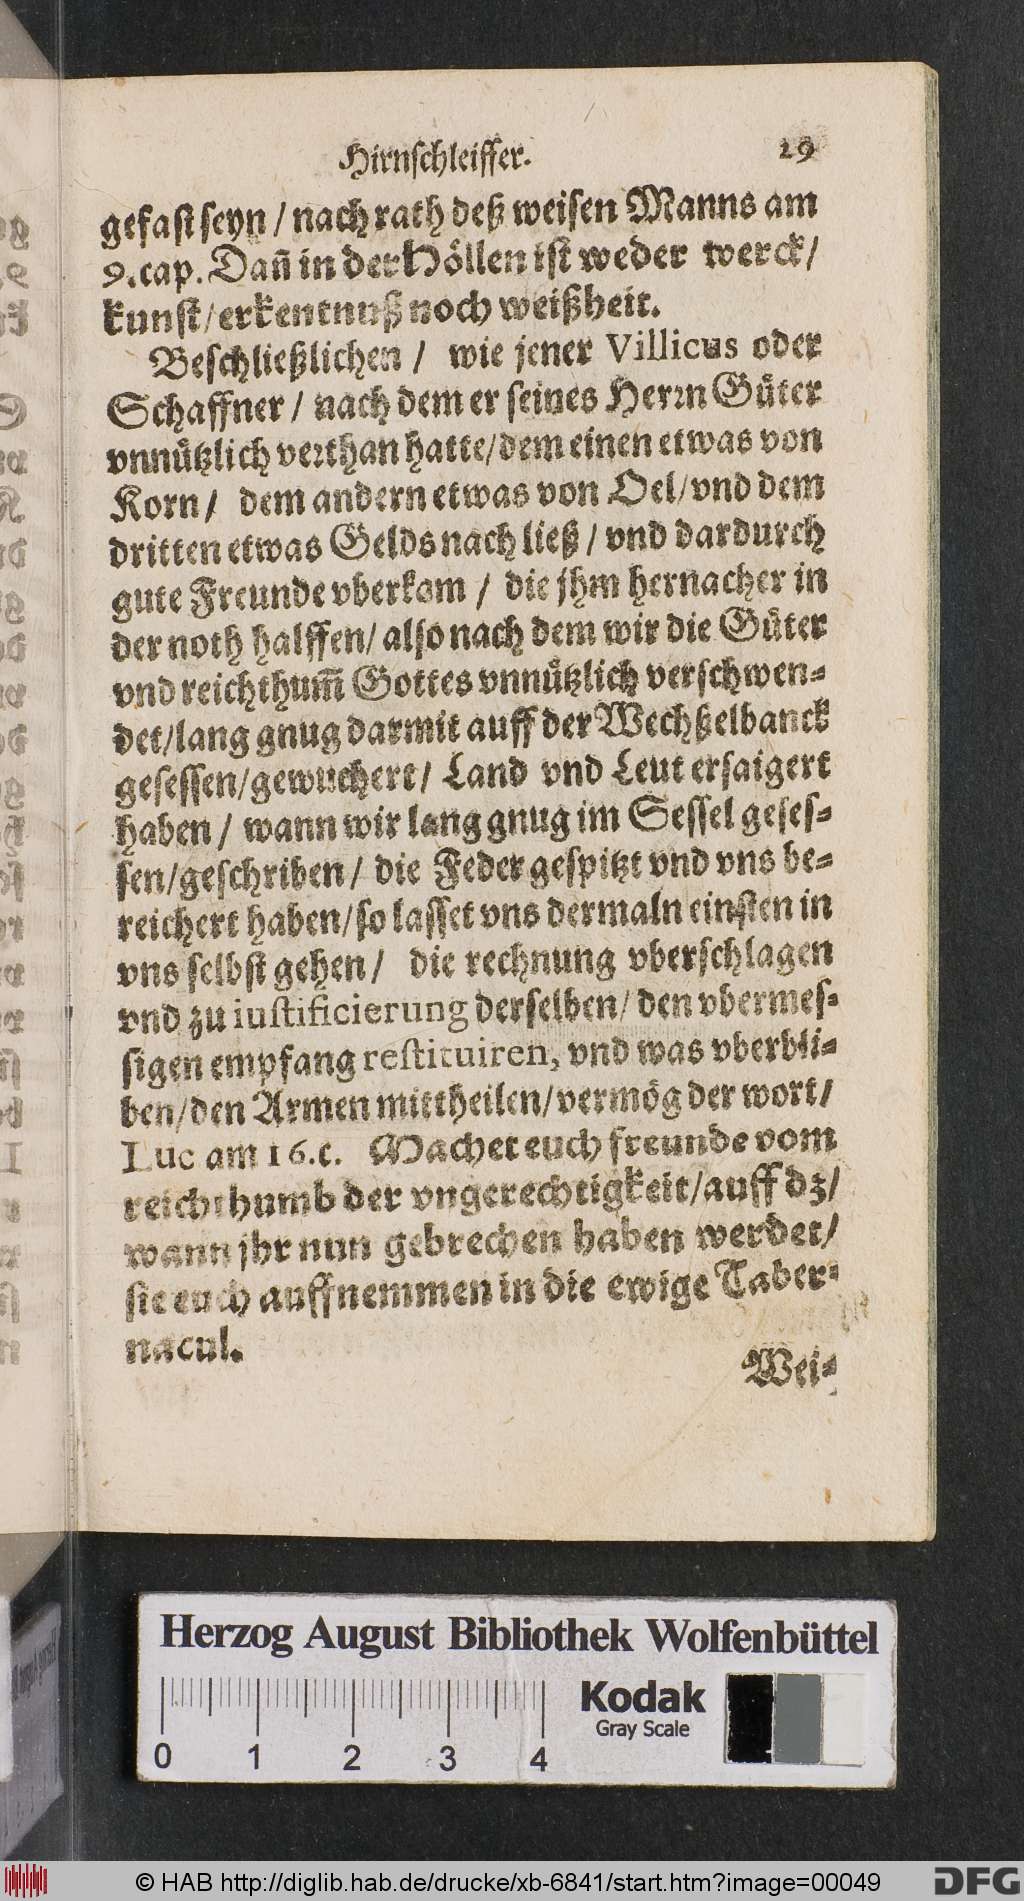 Hirnschleiffer. 29
gefast seyn / nach rath deß weisen Manns am
9. cap. Dañ in der Höllen ist weder werck /
kunst / erkentnuß noch weißheit.
Beschließlichen / wie jener Villicus oder
Schaffner / nach dem er seines Herrn Güter
vnnützlich verthan hatte / dem einen etwas von
Korn / dem andern etwas von Oel / vnd dem
dritten etwas Gelds nach ließ / vnd dardurch
gute Freunde vberkam / die jhm hernacher in
der noth halffen / also nach dem wir die Güter
vnd reichthum̃ Gottes vnnützlich verschwen-
det / lang gnug darmit auff der Wechßelbanck
gesessen / gewuchert / Land vnd Leut ersaigert
haben / wann wir lang gnug im Sessel geses-
sen / geschriben / die Feder gespitzt vnd vns be-
reichert haben / so lasset vns dermaln einsten in
vns selbst gehen / die rechnung vberschlagen
vnd zu iustificierung derselben / den vbermes-
sigen empfang restituiren, vnd was vberbli-
ben / den Armen mittheilen / vermög der wort /
Luc am 16. c. Machet euch freunde vom
reichthumb der vngerechtigkeit / auff dz /
wann jhr nun gebrechen haben werdet /
sie euch auffnemmen in die ewige Taber-
nacul.
Wei-
Herzog August Bibliothek Wolfenbüttel
Kodak
Gray Scale
0 1 2 3 4
© HAB http://diglib.hab.de/drucke/xb-6841/start.htm?image=00049
DFG